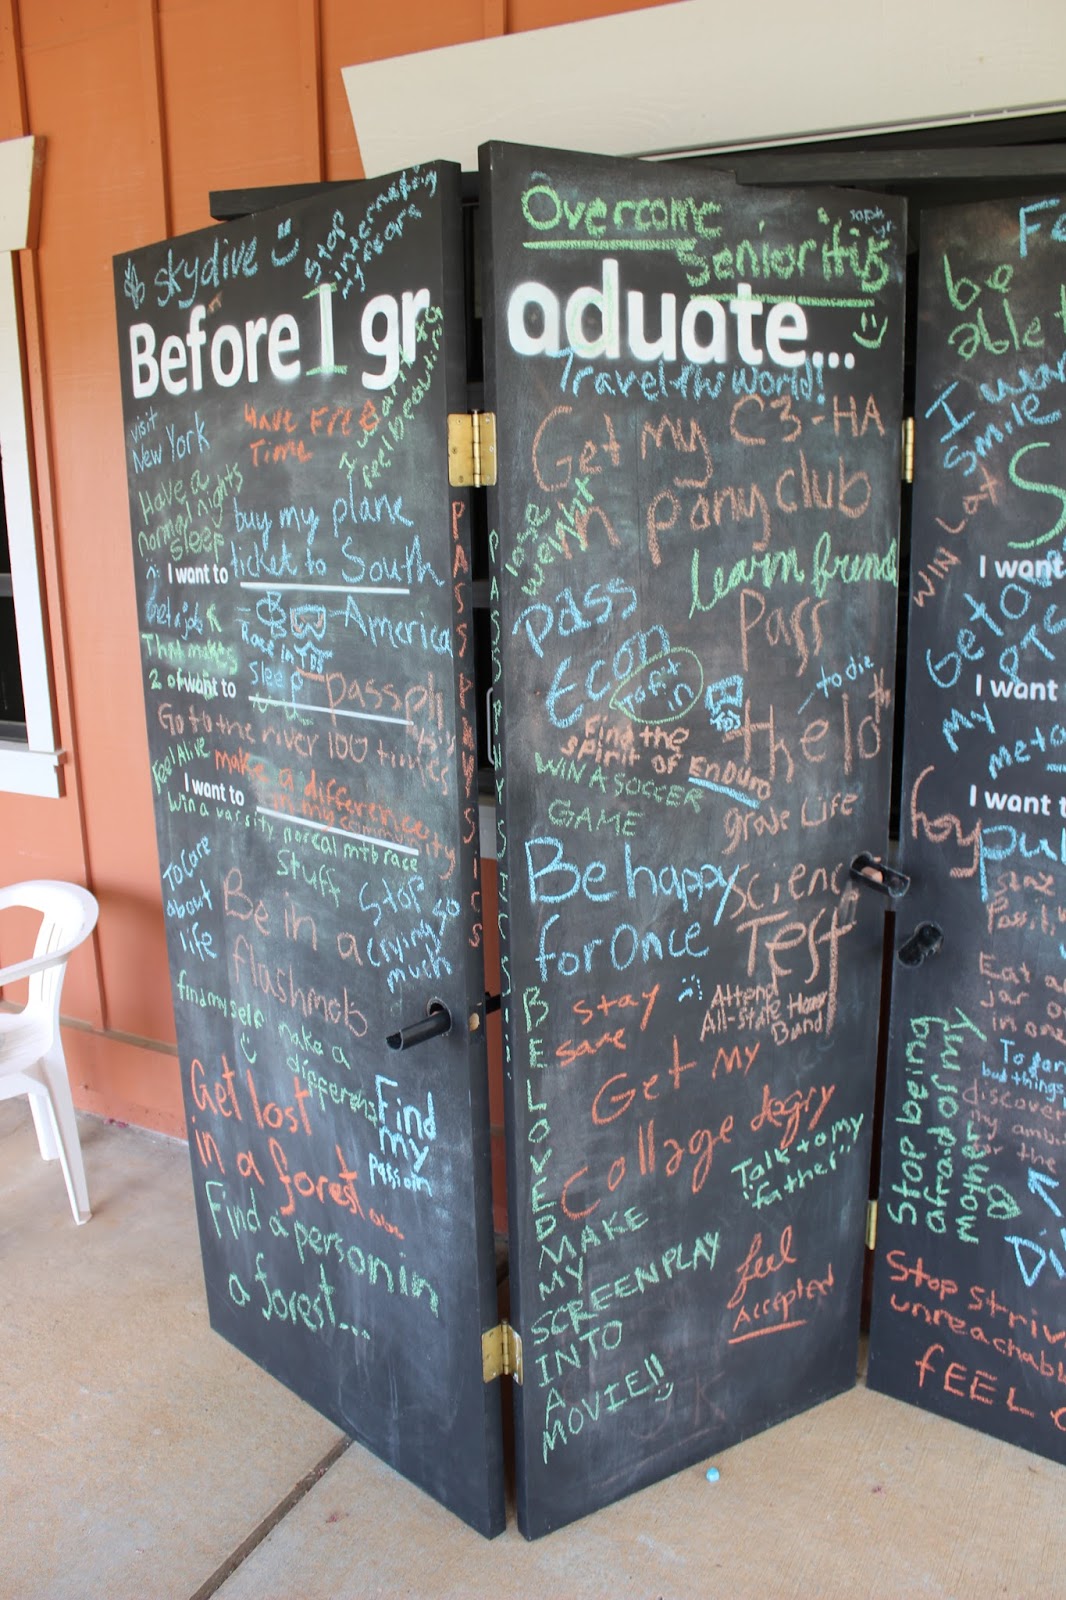 skydive
Stop
internalizing
my fears
Before I gr
visit
New York
HAVE FREE
TIME
I want to
feel beautiful
Have a
normal nights
sleep
buy my plane
I want to ticket to South
America
Get a job
That makes
2 of
I want to
sleep
pass ph
Go to the river 100 times
Feel Alive
make a difference
I want to in my community
win a varsity norcal mtb race
stuff
To Care
about
life
Be in a
flashmob
Stop
crying so
much
find my self
make a
difference
Get lost
in a forest
Find
my
passoin
Find a person in
a forest...
PASS PHYSICS
PASS PHYSICS
Overcome
Senioritis
aduate...
Travel the world!
Get my C3-HA
in pany club
lose
weight
learn french
pass
Econ
to fit
in
Pass
the 10th
to die
Find the
spirit of ENDURO
grade Life
WIN A SOCCER
GAME
Be happy
for Once
Science
Test
Stay
save
Attend
All-State Honor
Band
BELOVED
Get My
Collage degry
Talk to my
father
MAKE
MY
SCREENPLAY
INTO
A
MOVIE!!
feel
ACCEPTED
be
able
I wan
Smile
WIN
I want
Get to
I want
My
met
I want t
pu
Stay
Eat a
jar o
in one
To
bad things
discover
my ambi
or the
Stop being
afraid of my
mother
Stop striv
unreachable
FEEL